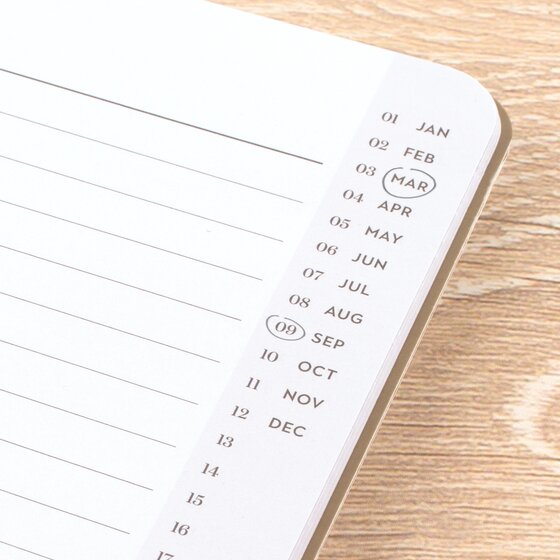 01 JAN
02 FEB
03 MAR
04 APR
05 MAY
06 JUN
07 JUL
08 AUG
09 SEP
10 OCT
11 NOV
12 DEC
13
14
15
16
17